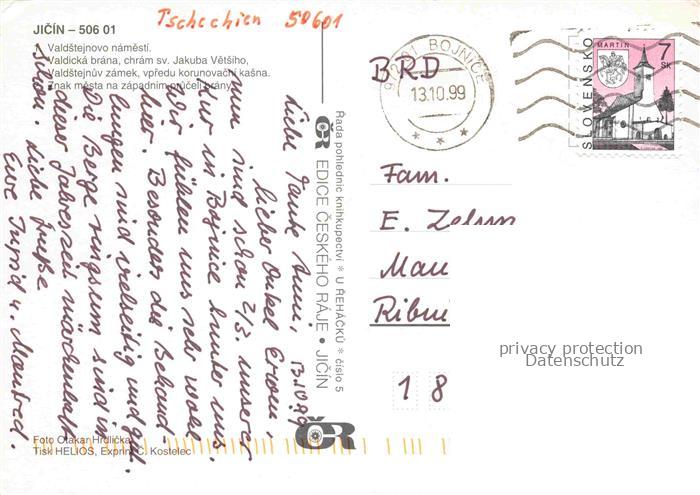 Tschechien 50601
JIČÍN – 506 01
Valdštejnovo náměstí.
Valdická brána, chrám sv. Jakuba Většího,
Valdštejnův zámek, vpředu korunovační kašna.
Znak města na západním průčelí brány
Liebe Tante Anni, 13.10.99
lieber Onkel Erwin,
nun sind schon 2/3. unserer
Kur in Bojnice hinter uns.
Wir fühlen uns sehr wohl
hier. Besonders die Behand-
lungen sind vielseitig und gut.
Die Berge ringsum sind in
dieser Jahreszeit märchenhaft
schön. Liebe Grüße
Eure Ingrid u. Manfred.
Řada pohlednic knihkupectví * U ŘEHÁČKŮ * číslo 5
ČR EDICE ČESKÉHO RÁJE • JIČÍN
ČR
Foto Otakar Hrdlička
Tisk HELIOS, Exprint C. Kostelec
BRD
97201 BOJNICE
13.10.99
SLOVENSKO
MARTIN
7
SK
Fam.
E.
Mau
Ribni
18
privacy protection
Datenschutz